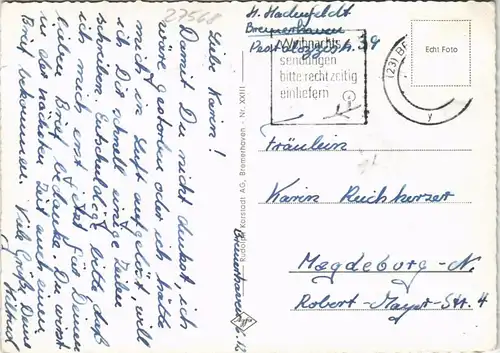 27568
H. Hackfeldt
Bremerhaven
Pestalozzistr. 39
Weihnachts-
sendungen
bitte rechtzeitig
einliefern
(23) BR
y
Echt Foto
Fräulein
Karin Reichherzer
Magdeburg - N.
Robert-Mayer-Str. 4
Rudolph Karstadt AG, Bremerhaven - Nr. XXIII
Agfa
Bremerhaven
Liebe Karin!
Damit Du nicht denkst, ich
wäre gestorben oder ich hätte
mich in Luft aufgelöst, will
ich Dir schnell einige Zeilen
schreiben. Entschuldige bitte, daß
ich mich erst jetzt für Deinen
lieben Brief bedanke. Du wirst
in der nächsten Zeit auch einen
Brief bekommen. Viele Grüße Deine